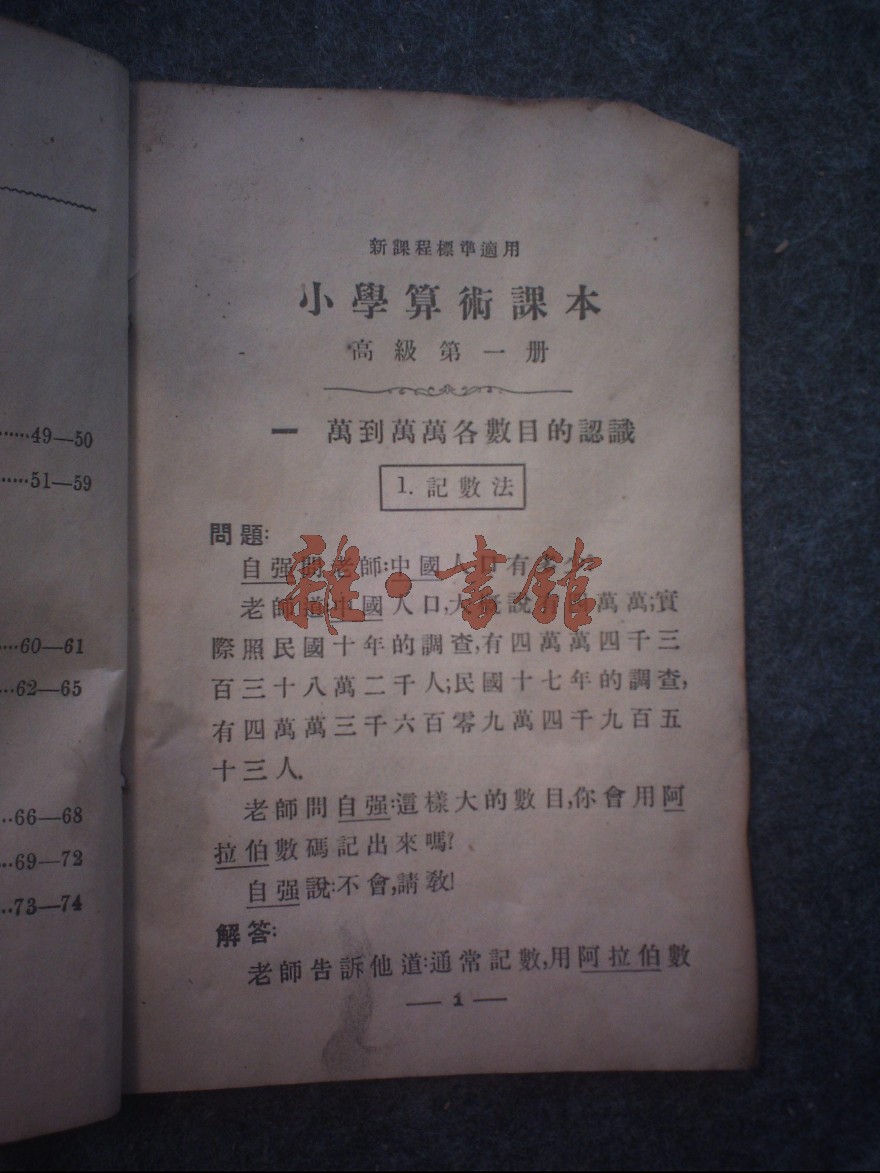 ……49—50
……51—59
……60—61
……62—65
……66—68
……69—72
……73—74
新課程標準適用
小學算術課本
高級第一册
一 萬到萬萬各數目的認識
1. 記數法
問題:
自强問老師:中國人口有
老師道:中國人口,大概說有四萬萬;實
際照民國十年的調查,有四萬萬四千三
百三十八萬二千人;民國十七年的調查,
有四萬萬三千六百零九萬四千九百五
十三人.
老師問自强:這樣大的數目,你會用阿
拉伯數碼記出來嗎?
自强說:不會,請敎!
解答:
老師告訴他道:通常記數,用阿拉伯數
— 1 —
雜·書館